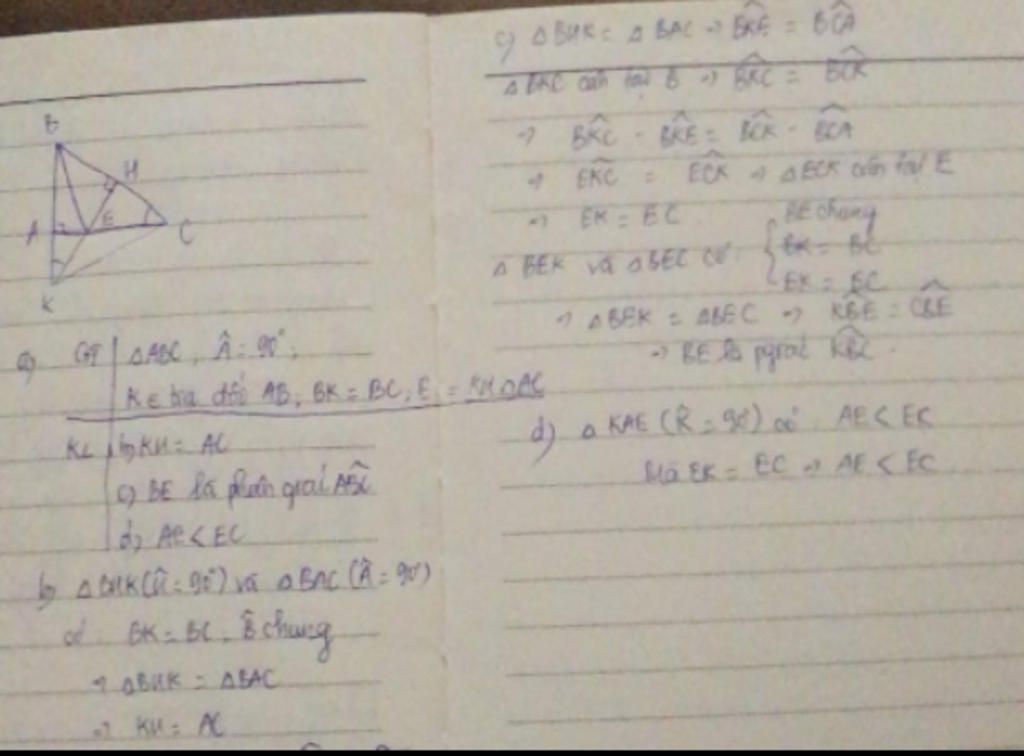 B
H
A
E
C
K
a) GT ΔABC, Â = 90°,
K ∈ tia đối AB, BK = BC, E = KH ∩ AC
KL b) KH = AC
c) BE là phân giác ABC
d) AE < EC
b) ΔBHK (Ĥ = 90°) và ΔBAC (Â = 90°)
có BK = BC, B̂ chung
→ ΔBHK = ΔBAC
→ KH = AC
c) ΔBHK = ΔBAC → BKE = BCA
ΔBKC cân tại B → BKC = BCK
→ BKC - BKE = BCK - BCA
→ EKC = ECK → ΔECK cân tại E
→ EK = EC
ΔBEK và ΔBEC có: { BE chung
BK = BC
EK = EC
→ ΔBEK = ΔBEC → KBE = CBE
→ BE là pgiác KBC.
d) ΔKAE ( = 90°) có AE < EK
Mà EK = EC → AE < EC